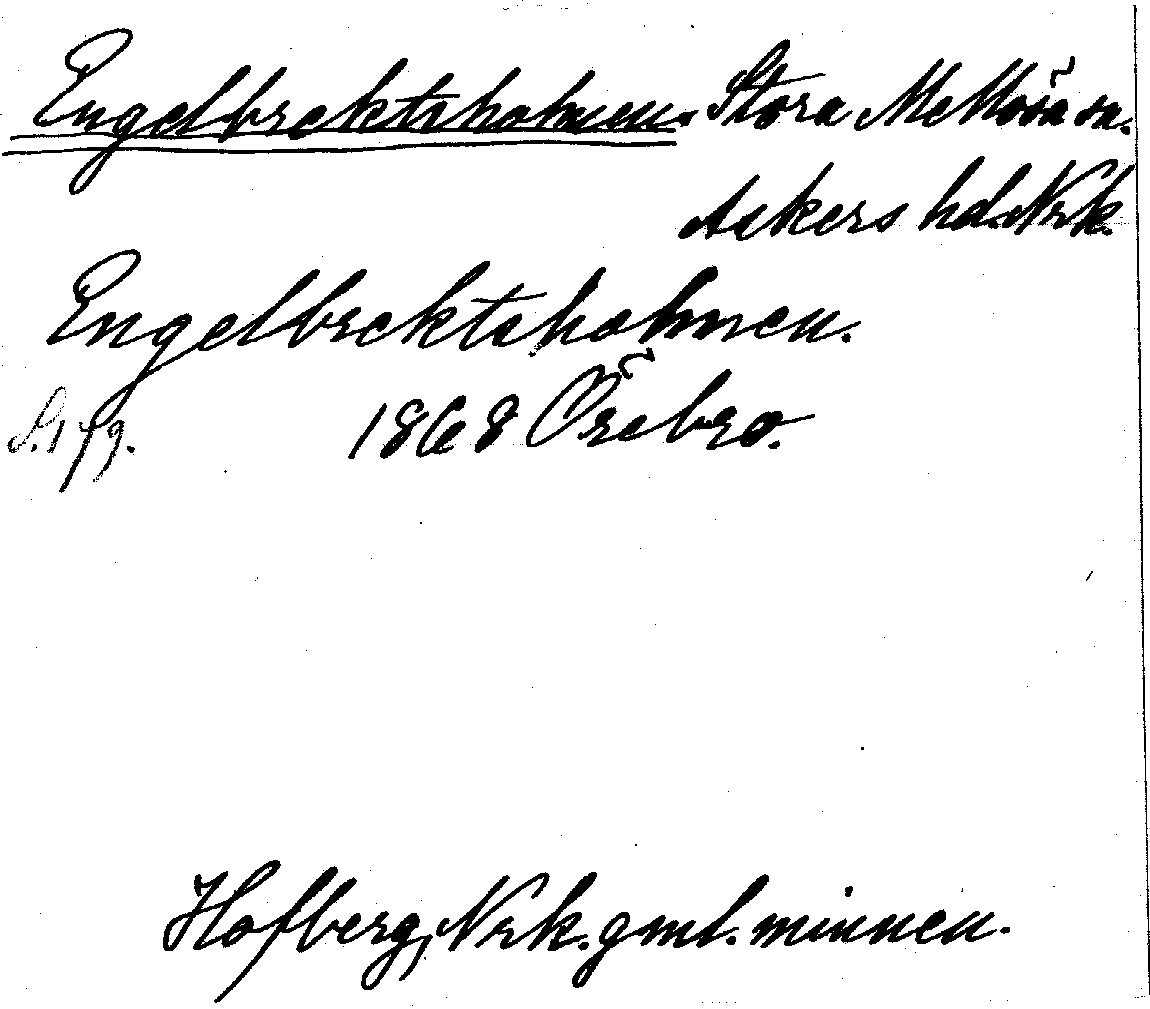 Engelbrektsholmen. Stora Mellösa sn.
Askers hd. Nrk.
Engelbrektsholmen.
S. 179. 1868 Örebro.
Hofberg, Nrk. gml. minnen.